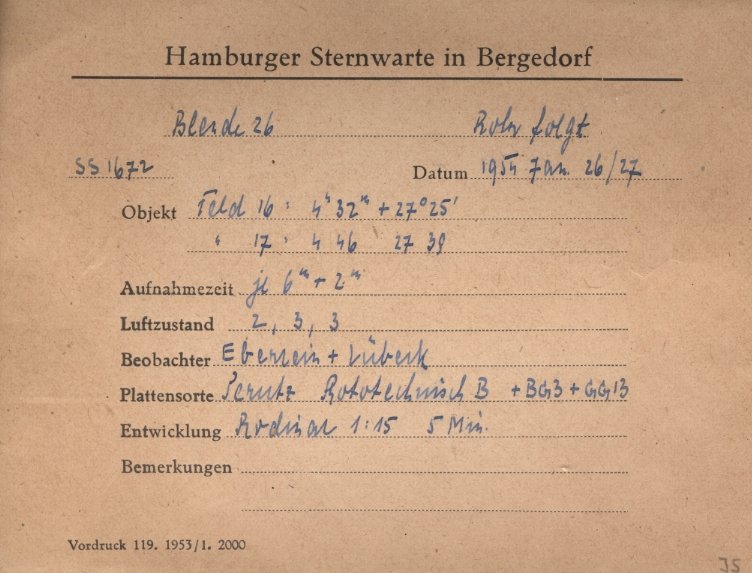 Hamburger Sternwarte in Bergedorf
Blende 26 Rohr folgt
SS 1672 Datum 1954 Jan. 26/27
Objekt Feld 16 : 4ʰ 32ᵐ + 27° 25'
" 17 : 4 46 27 39
Aufnahmezeit je 6ᵐ + 2ᵐ
Luftzustand 2, 3, 3
Beobachter + Lübeck
Plattensorte Perutz B + BG3 + GG13
Entwicklung Rodinal 1:15 5 Min.
Bemerkungen
Vordruck 119. 1953/1. 2000